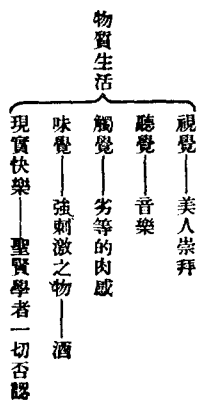 物質生活
視覺——美人崇拜
聽覺——音樂
觸覺——劣等的肉感
味覺——強刺激之物——酒
現實快樂——聖賢學者一切否認